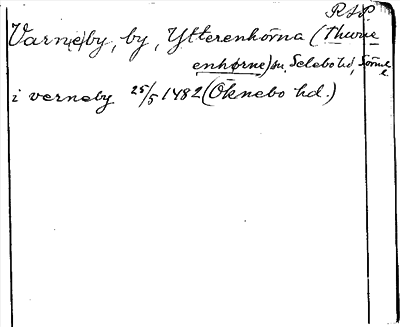 RAP
Varn(e)by, by, Ytterenhörna (Thorue
enhørne) sn, Selebo hd, Sörml
i verneby 25/5 1482 (Öknebo hd.)